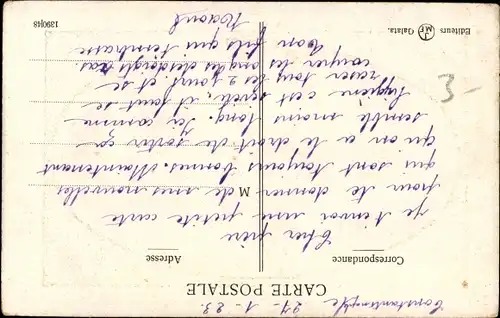 CARTE POSTALE
Correspondance
Adresse
M
Editeurs MF Galata.
139048
Constantinople
27-1-23
Cher père
je t'envoi une petite carte
pour te donner de mes nouvelles
qui sont toujours bonnes. Maintenant
qu on a le droit de sortir ça
semble moins long. Ici comme
hygiène c'est sévère, il faut se
raser tous les 2 jours et se
couper les ongles des doigts ras.
Ton fils qui t'embrasse
Raoul
3-